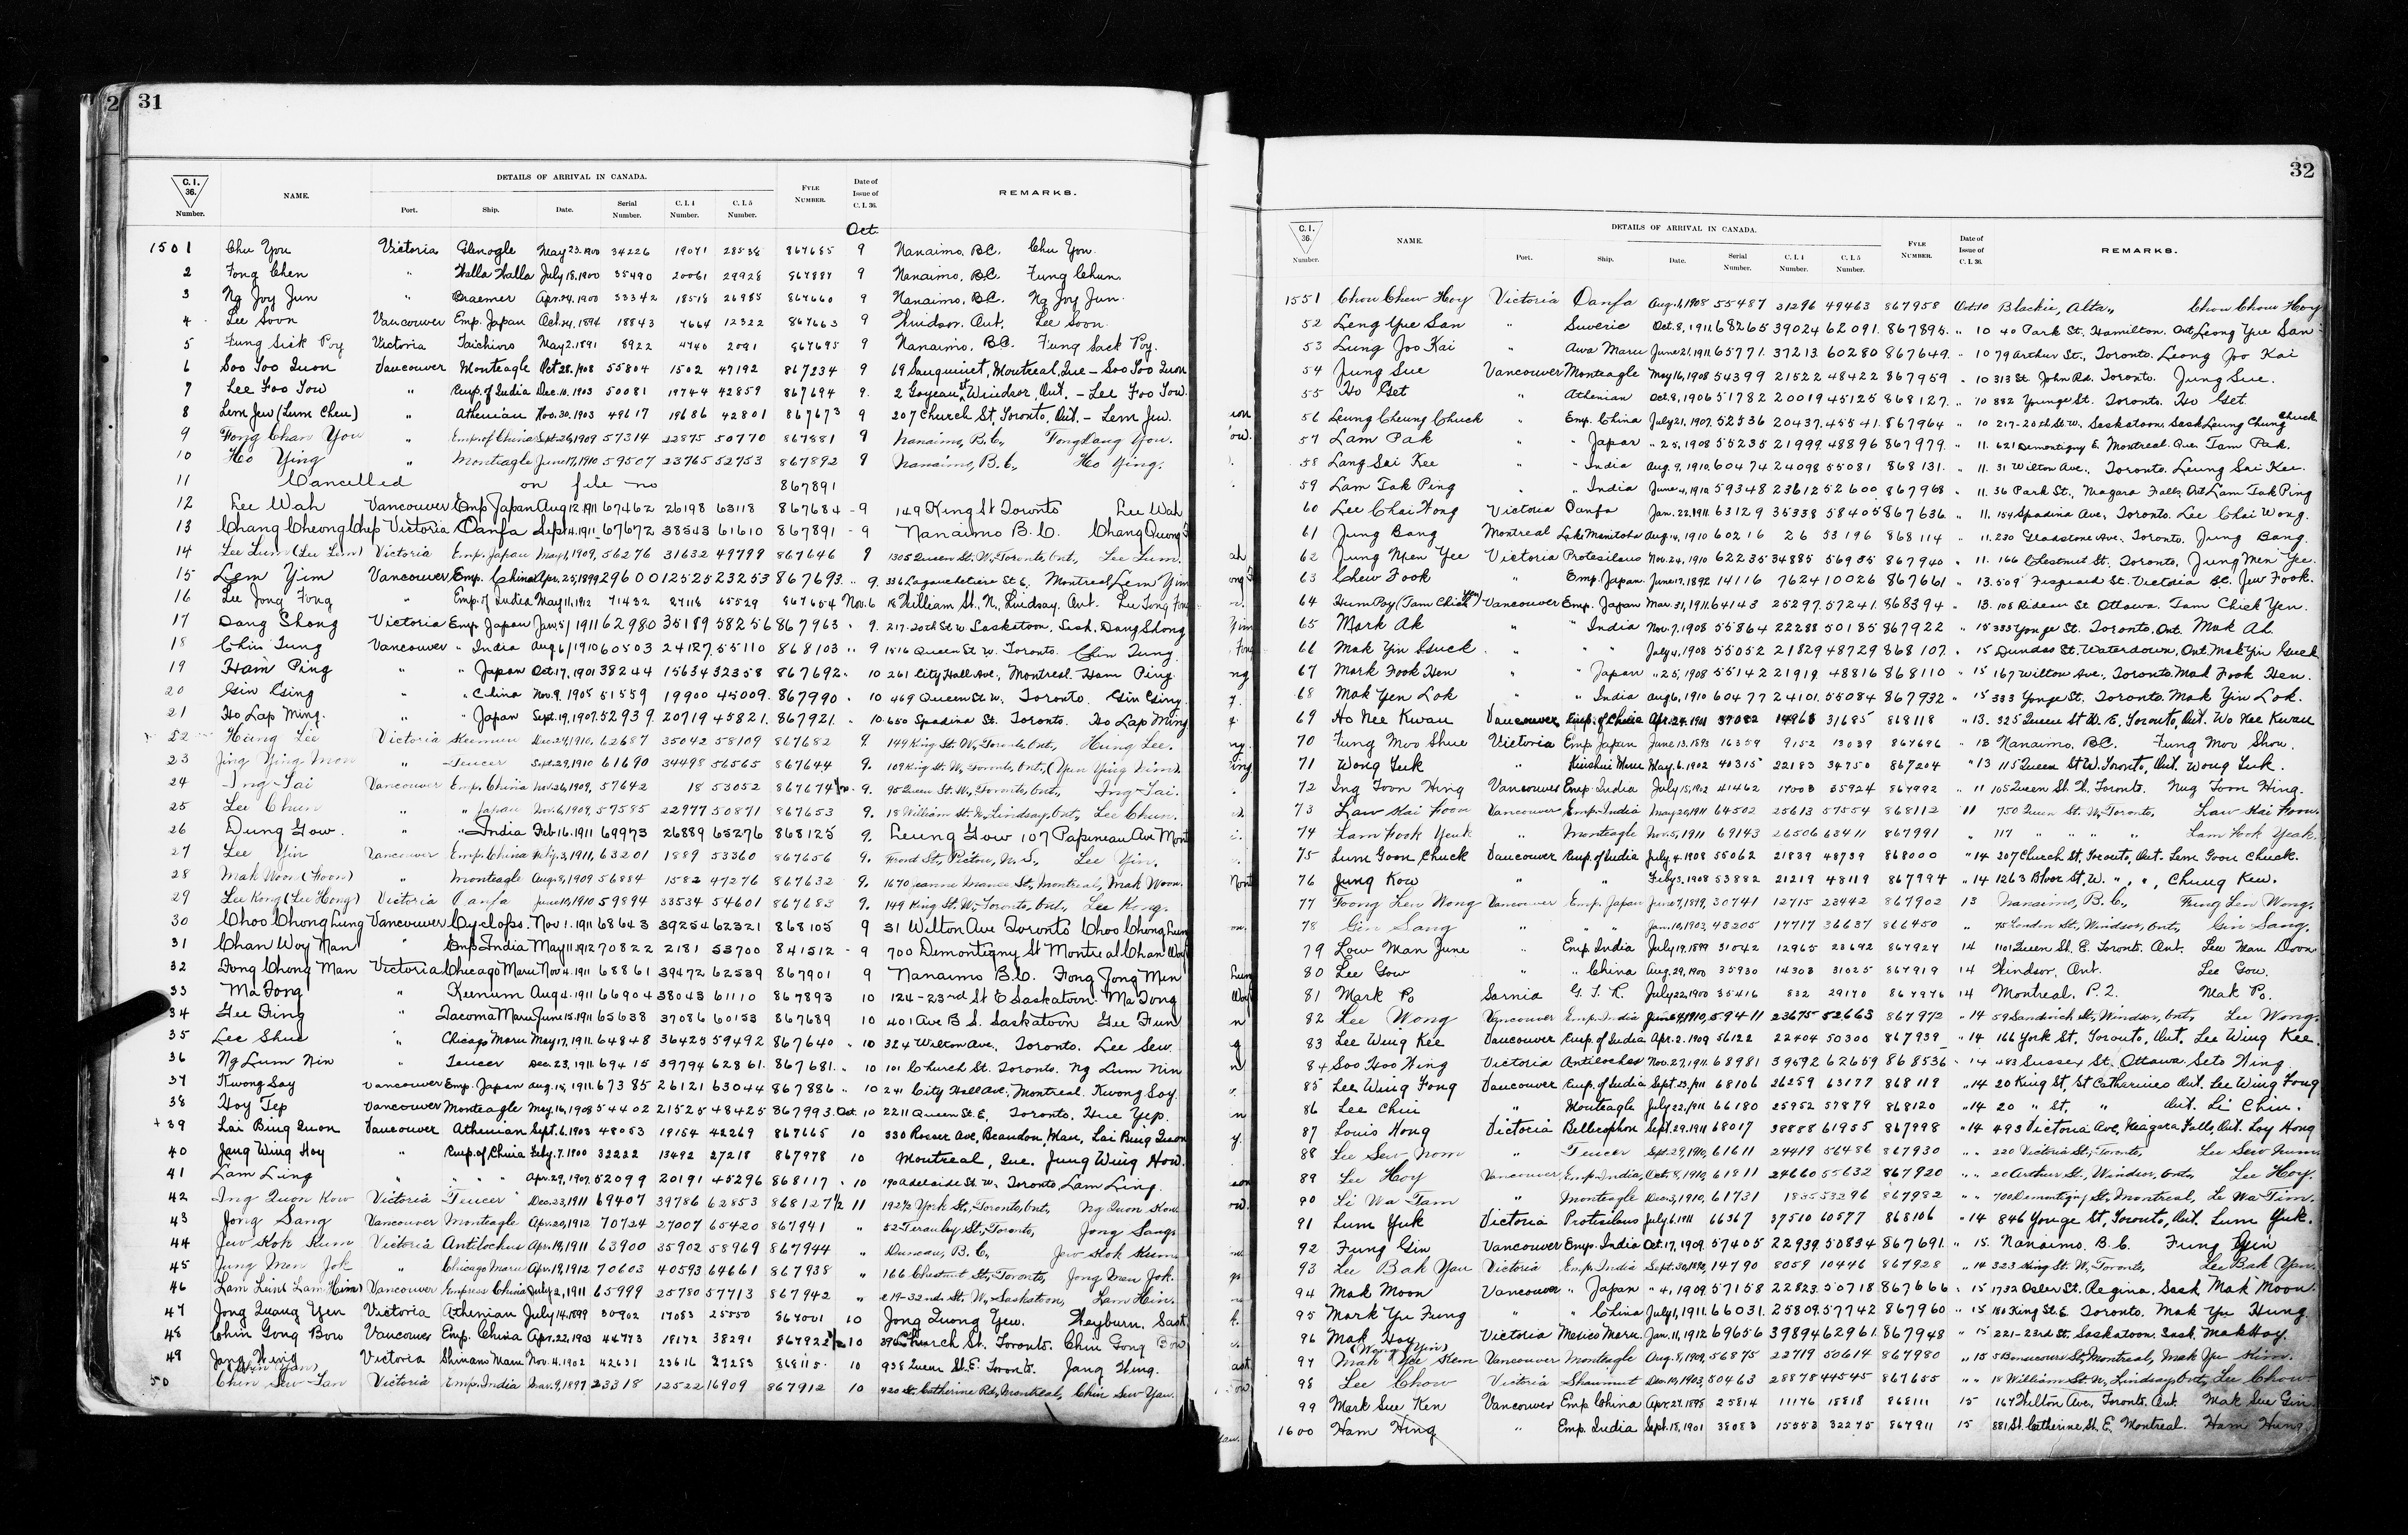 2 31
C. I. 36. Number. NAME. DETAILS OF ARRIVAL IN CANADA. Port. Ship. Date. Serial Number. C. I. 4 Number. C. I. 5 Number. FYLE NUMBER. Date of Issue of C. I. 36. REMARKS.
Oct.
1501 Chu You Victoria Glenogle May 23, 1900 34226 19071 28538 867685 9 Nanaimo, B.C. Chu You.
2 Fong Chen " Walla Walla July 18, 1900 35490 20061 29928 867887 9 Nanaimo, B.C. Fung Chun.
3 Ng Joy Jun " Braemer Apr. 24, 1900 33342 18518 26985 867660 9 Nanaimo, B.C. Ng Joy Jun.
4 Lee Soon Vancouver Emp. Japan Oct. 24, 1894 18843 7664 12322 867663 9 Windsor, Ont. Lee Soon.
5 Fung Sick Poy Victoria Taichioro May 2, 1891 8922 4740 2091 867695 9 Nanaimo, B.C. Fung Sack Poy.
6 Soo Foo Quon Vancouver Monteagle Oct 28, 1908 55804 1502 47192 867234 9 69 Sanguinet, Montreal, Que - Soo Foo Quon
7 Lee Foo Yow " Emp. of India Dec. 10, 1903 50081 19744 42859 867694 9. 2 Goyeau St Windsor, Ont. - Lee Foo Yow.
8 Lem Jew (Lum Cheu) " Athenian Nov. 30, 1903 49617 19686 42801 867673 9 207 Church St, Toronto, Ont - Lem Jew.
9 Fong Chan You " Emp. of China Sept. 26, 1909 57314 22875 50770 867881 9 Nanaimo, B.C., Fong Dang You.
10 Ho Ying " Monteagle June 17, 1910 59507 23765 52753 867892 9 Nanaimo, B.C., Ho Ying.
11 Cancelled on file no 867891
12 Lee Wah Vancouver Emp Japan Aug 12, 1911 67462 26198 63118 867684 - 9 149 King St Toronto Lee Wah
13 Chang Cheong Chep Victoria Oanfa Sept 4, 1911 67672 38543 61610 867891 - 9 Nanaimo B.C. Chang Quong
14 Lee Lum (Lee Lem) Victoria Emp. Japan May 1, 1909, 56276 31632 49799 867646 9 1305 Queen St. W., Toronto, Ont., Lee Lum.
15 Lem Yim Vancouver Emp. China Apr. 25, 1899 29600 12525 23253 867693. " 9. 336 Lagauchetiere St E, Montreal, Lem Yim
16 Lee Jong Fong " Emp. of India May 11, 1912 71432 27116 65529 867654 Nov. 6 18 William St., N., Lindsay, Ont. Lee Tong Fong
17 Dang Shong Victoria Emp. Japan Jan. 5, 1911 62980 35189 58256 867963 " 9. 217-20th St W Saskatoon, Sask. Dang Shong
18 Chin Tung Vancouver " India Aug. 6, 1910 60503 24127 55110 868103 " 9 1516 Queen St W. Toronto. Chin Tung.
19 Ham Ping " " Japan Oct. 17, 1901 38244 15634 32358 867692 " 10 261 City Hall Ave., Montreal. Ham Ping.
20 Gin Ging " " China Nov. 9, 1905 51559 19900 45009. 867990 " 10 469 Queen St. W. Toronto. Gin Ging.
21 Ho Lap Ming. " " Japan Sept. 19, 1907. 52939. 20719 45821. 867921. " 10 650 Spadina St. Toronto. Ho Lap Ming
22 Hung Lee Victoria Keemun Dec. 24, 1910, 62687 35042 58109 867682 9. 149 King St. W., Toronto, Ont., Hung Lee.
23 Jing Ying Mon " Teucer Sept. 29, 1910 61690 34498 56565 867644 9. 109 King St. W., Toronto, Ont., (Yun Ying Kim).
24 Ing Tai Vancouver Emp. China Nov. 26, 1909, 57642 18 53052 867674 1/2 " 9. 95 Queen St. W., Toronto, Ont., Ing Tai.
25 Lee Chun " " Japan Nov. 6, 1909, 57585 22977 50871 867653 9. 18 William St. N., Lindsay, Ont., Lee Chun.
26 Dung Gow. " " India Feb 16. 1911 69973 26889 65276 868125 9. Leung Gow 107 Papineau Ave Mont
27 Lee Yin Vancouver Emp. China Feby. 3, 1911, 63201 1889 53360 867656 9. Front St., Pictou, N.S., Lee Yin.
28 Mak Woon (Foon) " Monteagle Aug. 8, 1909 56884 1582 47276 867632 9. 1670 Jeanne Mance St., Montreal, Mak Woon.
29 Lee Kong (Lee Hong) Victoria Oanfa June 10, 1910 59894 33534 54601 867683 9. 149 King St. W., Toronto, Ont., Lee Kong.
30 Choo Chong Lung Vancouver Cyclops. Nov 1. 1911 68643 39254 62321 868105 9 31 Wilton Ave Toronto Choo Chong Lum
31 Chan Woy Man " Emp India May 11, 1912 70822 2181 53700 841512 - 9 700 Demontigny St Montreal Chan Woy
32 Fong Chong Man Victoria Chicago Maru Nov 4. 1911 68861 39472 62539 867901 9 Nanaimo B.C. Fong Jong Min
33 Ma Fong " Keenum Aug 4, 1911 66904 38043 61110 867893 10 124-23rd St E Saskatoon. Ma Fong
34 Gee Fing " Tacoma Maru June 15, 1911 65638 37086 60153 867689 10 401 Ave B S. Saskatoon Gee Fun
35 Lee Shue " Chicago Maru May 17, 1911 64848 36425 59492 867640 " 10 324 Wilton Ave., Toronto. Lee Sew.
36 Ng Lum Nin " Teucer Dec. 23, 1911 69415 39794 62861. 867681. " 10 101 Church St. Toronto. Ng Lum Nin
37 Kwong Say Vancouver Emp. Japan Aug. 15, 1911. 67385 26121 63044 867886 " 10 241 City Hall Ave., Montreal. Kwong Say.
38 Hoy Tep Vancouver Monteagle May 16, 1908 54402 21525 48425 867993. Oct. 10 2211 Queen St. E, Toronto. Hue Yep.
+ 39 Lai Bing Quon Vancouver Athenian Sept. 6, 1903 48053 19154 42269 867665 10 330 Rosser Ave, Brandon, Man, Lai Bing Quon
40 Jang Wing Hoy " Emp. of China Feby. 7, 1900 32222 13492 27218 867978 10 Montreal, Que. Jung Wing How.
41 Lam Ling " " Apr. 29, 1907 52099 20191 45296 868117 " 10 190 Adelaide St. W. Toronto, Lam Ling.
42 Ing Quon Kow Victoria Teucer Dec. 23, 1911 69407 39786 62853 868127 1/2 11 192½ York St., Toronto, Ont., Ng Quon Kow
43 Jong Sang Vancouver Monteagle Apr. 20, 1912 70724 27007 65420 867941 " 52 Terauley St., Toronto, Jong Sang.
44 Jew Kok Kum Victoria Antilochus Apr. 19, 1911 63900 35902 58969 867944 " Duncan, B.C., Jew Kok Kum
45 Jung Men Jok " Chicago Maru Apr. 19, 1912 70603 40593 64661 867938 " 166 Chestnut St., Toronto, Jong Men Jok.
46 Lam Lind (Lam Him) Vancouver Empress China July 2, 1911 65999 25780 57713 867942 " 219-32nd. St. W., Saskatoon, Lam Hin.
47 Jong Quang Yen Victoria Athenian July 14, 1899 30902 17083 25550 867001 10 Jong Quong Yew. Weyburn, Sask
48 Chin Gong Bow Vancouver Emp. China Apr. 22, 1903 44773 18172 38291 867922 1/2 10 390 Church St. Toronto. Chin Gong Bow
49 Jang Wing Victoria Shinano Maru Nov. 4, 1902 42631 23616 37283 868115 10 938 Queen St. E. Toronto. Jang Wing.
50 Chin Sew Yan (Chin Yan) Victoria Emp. India Mar. 9, 1897 23318 12522 16909 867912 10 420 St. Catherine Rd., Montreal, Chin Sew Yan.
32
C. I. 36. Number. NAME. DETAILS OF ARRIVAL IN CANADA. Port. Ship. Date. Serial Number. C. I. 4 Number. C. I. 5 Number. FYLE NUMBER. Date of Issue of C. I. 36. REMARKS.
1551 Chou Chew Hoy Victoria Oanfa Aug. 6, 1908 55487 31296 49463 867958 Oct. 10 Blackie, Alta., Chou Chow Hoy
52 Leng Yue San " Suveric Oct. 8, 1911 68265 39024 62091. 867895. " 10 40 Park St. Hamilton. Ont, Leong Yue San
53 Lung Joo Kai " Awa Maru June 21, 1911 65771. 37213. 60280 867649. " 10 79 Arthur St., Toronto. Leong Joo Kai
54 Jung Sue Vancouver Monteagle May 16, 1908 54399 21522 48422 867959 " 10 313 St. John Rd. Toronto. Jung Sue.
55 Ho Get " Athenian Oct. 8, 1906 51782 20019 45125 868127. " 10 882 Younge St. Toronto. Ho Get.
56 Leung Cheung Chuck " Emp. China July 21, 1907. 52536 20437. 45541. 867964 " 10 217-20th St W. Saskatoon, Sask Leung Chung Chuck
57 Lam Pak " " Japan " 25, 1908 55235 21999. 48896 867979. " 11. 621 Demontigny E. Montreal. Que. Tam Pak.
58 Lang Sai Kee " " India Aug. 9, 1910. 60474 24098 55081 868131. " 11. 31 Wilton Ave., Toronto. Leung Sai Kee.
59 Lam Tak Ping " " India June 4, 1910 59348 23612 52600. 867968 " 11. 36 Park St., Niagara Falls, Ont Lam Tak Ping
60 Lee Chai Fong Victoria Oanfa Jan. 22, 1911 63129 35338 58405 867636 " 11. 154 Spadina Ave., Toronto. Lee Chai Wong.
61 Jung Bang Montreal Lake Manitoba Aug. 14, 1910 60216 26 53196 868114 " 11. 230 Gladstone Ave., Toronto. Jung Bang.
62 Jung Men Yee Victoria Protesilaus Nov. 24, 1910 62235 34885 56935 867940 " 11. 166 Chestnut St. Toronto. Jung Men Yee.
63 Chew Fook " Emp. Japan June 17, 1892 14116 7624 10026 867661 " 13. 509 Fisguard St. Victoria B.C. Jew Fook.
64 Hum Poy (Tam Chick Yen) Vancouver Emp. Japan Mar. 31, 1911 64143 25297. 57241. 868394 " 13. 108 Rideau St Ottawa. Tam Chick Yen.
65 Mark Ah " " India Nov. 7, 1908 55864 22288 50185 867922 " 15 333 Yonge St. Toronto. Ont. Mak Ah.
66 Mak Yin Guck " " July 4, 1908 55052 21829 48729 868107. " 15 Dundas St. Waterdown, Ont. Mak Yin Guck
67 Mark Fook Hen " Japan " 25, 1908 55142 21919 48816 868110 " 15 167 Wilton Ave., Toronto. Mak Fook Hen.
68 Mak Yen Lok " " India Aug 6, 1910 60477 24101. 55084 867932 " 15 333 Yonge St. Toronto. Mak Yin Lok.
69 Ho Nee Kwan Vancouver Emp. of China Apr. 24, 1901 37082 14963 31685 868118 " 13. 325 Queen St W. Toronto, Ont. Wo Kee Kwan
70 Fung Moo Shue Victoria Emp. Japan June 13, 1893 16359 9152 13039 867696 " 13 Nanaimo, B.C. Fung Mov Shou.
71 Wong Luk " Kinshiu Maru May 6, 1902 40315 22183 34750 867204 " 13 115 Queen St W. Toronto, Ont. Wong Luk.
72 Ing Foon Wing Vancouver Emp. India July 15, 1902 41462 17003 35924 867992 " 11 105 Queen St. W, Toronto. Nug Toon Hing.
73 Law Kai Foon Vancouver Emp. India May 20, 1911 64502 25613 57554 868112 11 750 Queen St. W., Toronto, Law Kai Foon.
74 Lam Fook Yeuk " Monteagle Nov. 5, 1911 69143 26506 63411 867991 " 117 " " " " Lam Fook Yeak.
75 Lum Goon Chuck Vancouver Emp. of India July 4, 1908 55062 21839 48739 868000 " 14 207 Church St, Toronto, Ont. Lem Goon Chuck.
76 Jung Kow " " Feby 3, 1908 53882 21219 48119 867994 " 14 1263 Bloor St, W. " , " , Chung Kew.
77 Foong Len Wong Vancouver Emp. Japan June 7, 1899, 30741 12715 23442 867902 13 Nanaimo, B.C., Fung Len Wong.
78 Gin Sang " " Jan. 10, 1903, 43205 17717 36637 866450 " 75 London St., Windsor, Ont., Gin Sang.
79 Low Man June " Emp India July 19, 1899 31042 12965 23692 867927 14 1101 Queen St. E. Toronto. Ont. Lew Man Doon
80 Lee Gow " " China Aug. 29, 1900 35930 14303 31025 867919 14 Windsor, Ont. Lee Gow.
81 Mark Po Sarnia G. T. R. July 22, 1900 35416 832 29170 867976 14 Montreal, P.Q. Mak Po.
82 Lee Wong Vancouver Emp. India June 4, 1910, 59411 23675 52663 867972 " 14 59 Sandwich St., Windsor, Ont., Lee Wong.
83 Lee Wing Kee Vancouver Emp. of India Apr. 2, 1909 56122 22404 50300 867939 " 14 166 York St, Toronto, Ont. Lee Wing Kee.
84 Soo Hoo Wing Victoria Antilochus Nov. 27, 1911 68981 39592 62659 868536 " 14 483 Sussex St. Ottawa Seto Wing
85 Lee Wing Fong Vancouver Emp. of India Sept. 23, 1911 68106 26259 63177 868119 " 14 20 King St, St Catherines Ont. Lee Wing Fong
86 Lee Chiu " Monteagle July 22, 1911 66180 25952 57879 868120 " 14 20 " St, " Ont. Li Chiu.
87 Louis Hong Victoria Bellerophon Sept. 29, 1911 68017 38888 61955 867998 " 14 493 Victoria Ave, Niagara Falls, Ont. Loy Hong
88 Lee Sew Nom " Teucer Sept. 29, 1910, 61611 24419 56486 867930 " " 220 Victoria St., Toronto, Lee Sew Num
89 Lee Hoy Vancouver Emp. India, Oct. 8, 1910, 61811 24660 55632 867920 " " 20 Arthur St., Windsor, Ont., Lee Hoy.
90 Li Wa Tam " Monteagle Dec. 3, 1910, 61731 1835 53296 867982 " " 700 Demontigny St., Montreal, Le Wa Tim.
91 Lum Yuk Victoria Protisilaus July 6, 1911 66367 37510 60577 868106 " 14 846 Yonge St, Toronto, Ont. Lum Yuk.
92 Fung Gin Vancouver Emp. India Oct. 17, 1909. 57405 22939. 50834 867691. " 15. Nanaimo. B.C. Fung Gin
93 Lee Bak Yau Victoria Emp. India Sept. 30, 1892, 14790 8059 10446 867928 " 14 323 King St. W., Toronto, Lee Bak Yan.
94 Mak Moon Vancouver " Japan " 4, 1909 57158 22823. 50718 867666 " 15 1732 Osler St. Regina, Sask Mak Moon.
95 Mark Yu Fung " " China July 1, 1911. 66031. 25809. 57742 867960 " 15 180 King St. E. Toronto. Mak Yu Hung.
96 Mak Hoy Victoria Mexico Maru. Jan. 11, 1912 69656 39894 62961. 867948 " 15 221-23rd St., Saskatoon. Sask. Mak Hoy.
97 Mak Yee Kem (Wong Yin) Vancouver Monteagle Aug. 8, 1909, 56875 22719 50614 867980 " 15 5 Bonsecours St., Montreal, Mak Yu Kim.
98 Lee Chow Victoria Shawmut Dec. 19, 1903, 50463 28878 44545 867655 " " 18 William St. N., Lindsay, Ont., Lee Chow.
99 Mark Sue Ken Vancouver Emp China Apr. 27, 1898 25814 11176 18818 868111 15 167 Wilton Ave, Toronto. Ont. Mak Sue Gin
1600 Ham Hing " Emp. India Sept. 18, 1901 38083 15553 32275 867911 15 881 St. Catherine St. E, Montreal. Ham Hung.